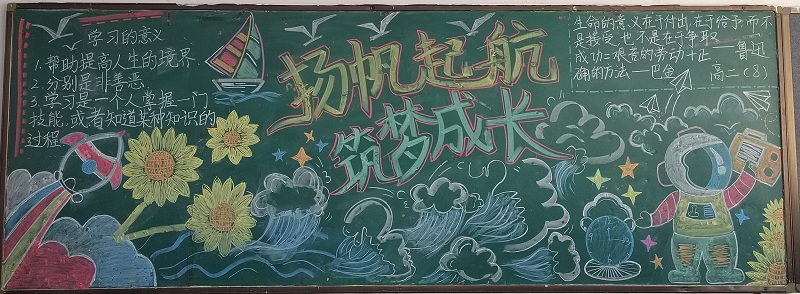 学习的意义
1.帮助提高人生的境界
2.分别是非善恶
3.学习是一个人掌握一门
技能,或者知道某种知识的
过程
扬帆起航
筑梦成长
生命的意义在于付出,在于给予,而不
是接受,也不是在于争取
成功=艰苦的劳动+正 ——鲁迅
确的方法——巴金
高二(8)